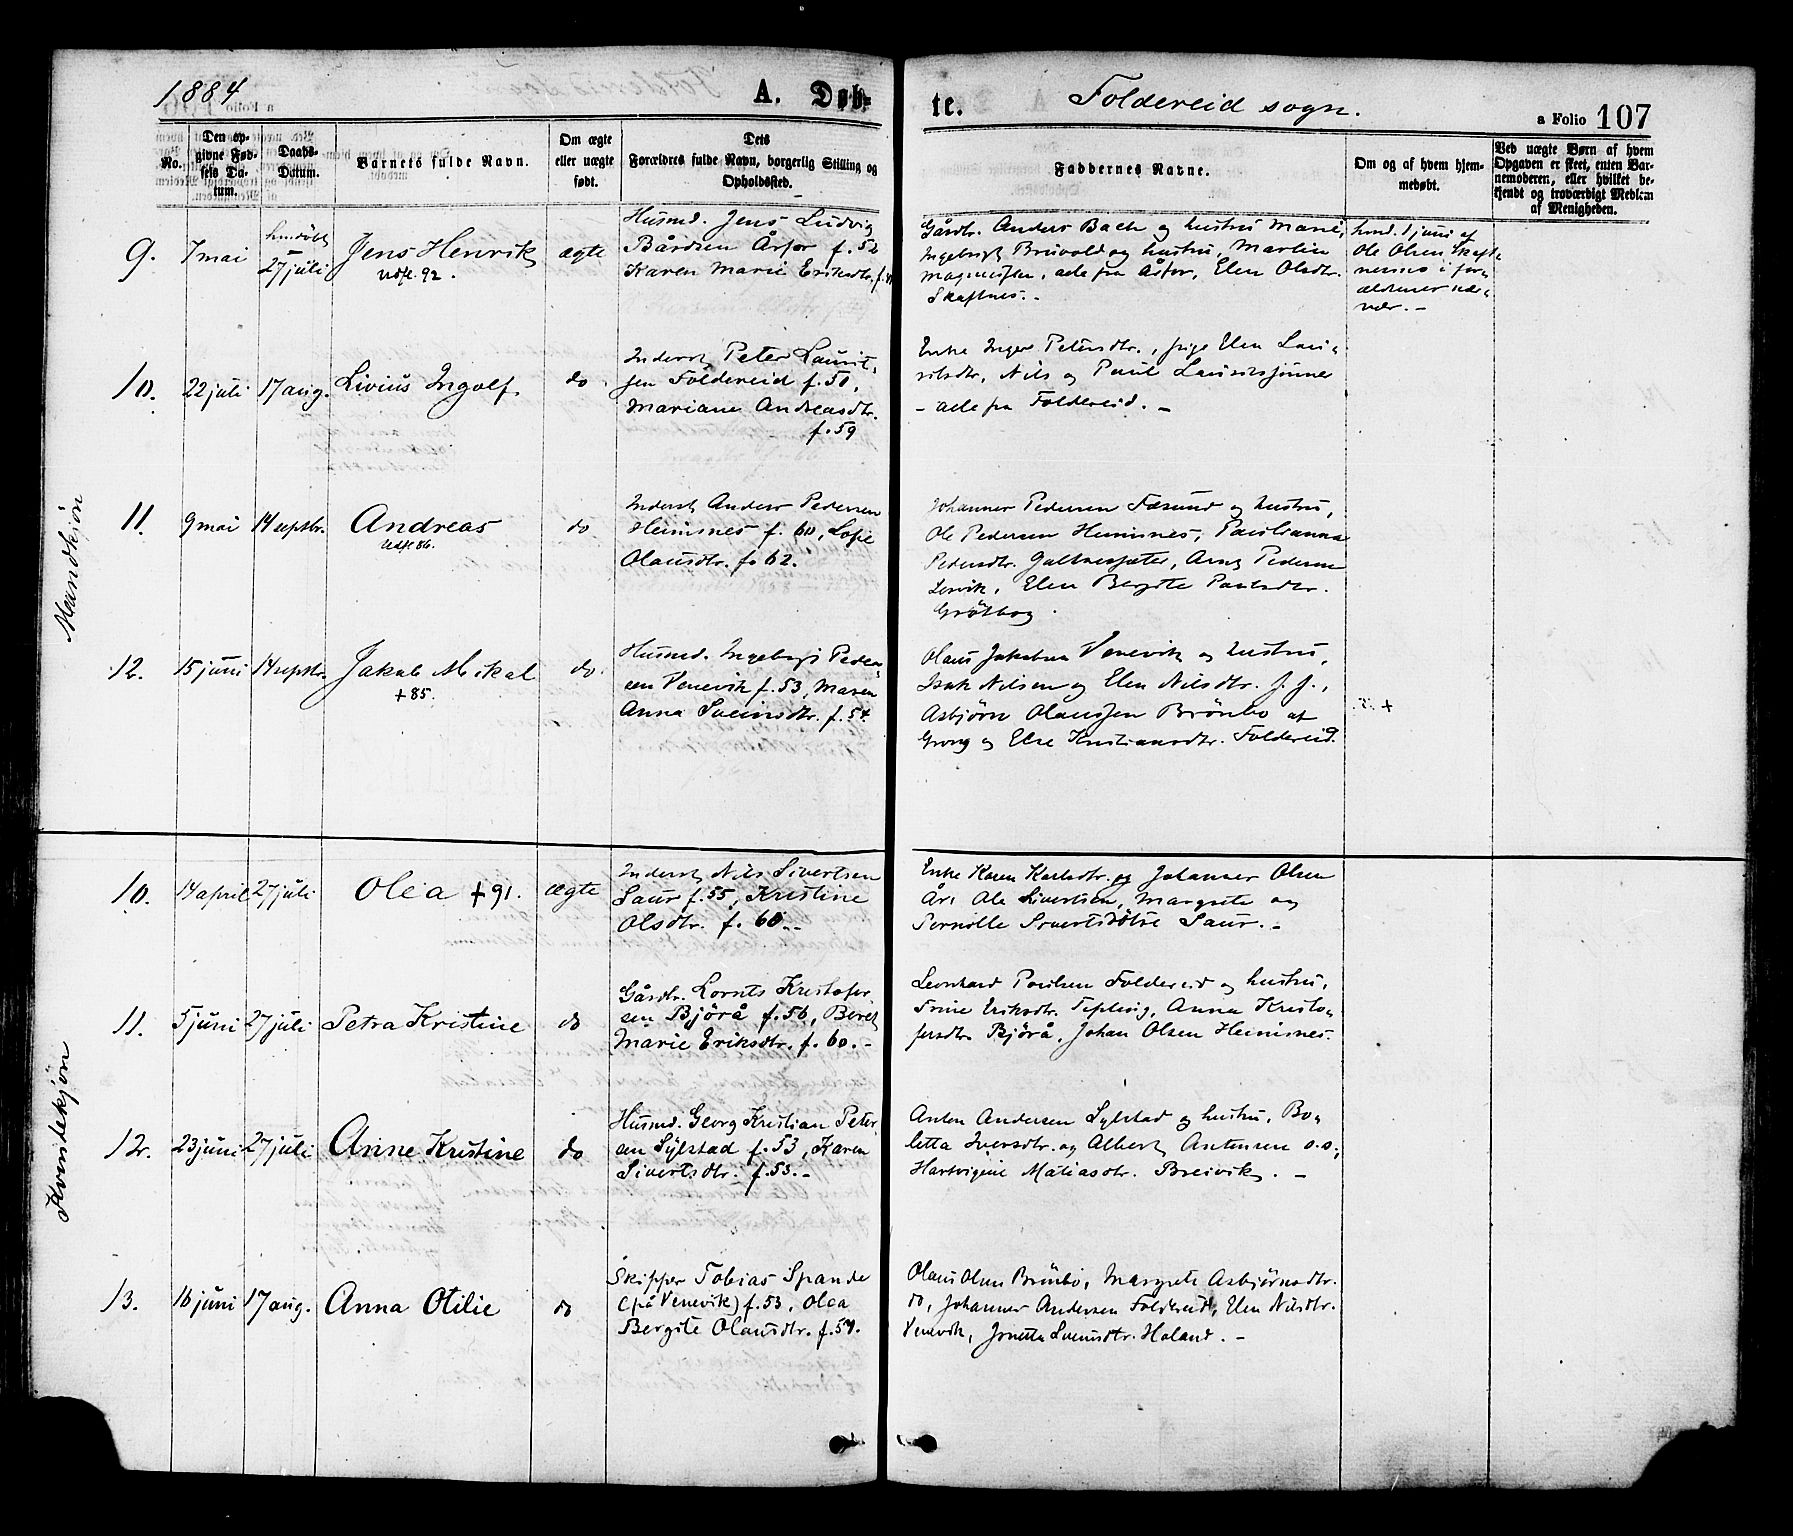 1884
A. Døb-
te.
Foldereid sogn.
a Folio 107
No.
Den op-
givne Fød-
sels Da-
tum.
Daabs-
Datum.
Barnets fulde Navn.
Om ægte
eller uægte
født.
Dets
Forældres fulde Navn, borgerlig Stilling og
Opholdssted.
Faddernes Navne.
Om og af hvem hjem-
medøbt.
Ved uægte Børn af hvem
Opgaven er skeet, enten Bar-
nemoderen, eller hvilket be-
kjendt og troværdigt Medlem
af Menigheden.
Mandkjøn
9.
7 mai
hmdöbt
27 juli
Jens Henrik
Udfl. 92.
ægte
Husmd. Jens Ludvig
Bårdsen Årfor f. 52
Karen Marie Eriksdtr. f.
Gårdbr. Anders Bach og hustru Marie,
Ingebrigt Bruvold og hustru, Martin
Magnussen, alle fra Årfor, Elen Olsdtr.
Skaftnes. -
hmd. 1 juni af
Ole Olsen Skaft-
nesmo i for-
ældrenes nær-
vær. -
10.
22 juli
17 aug.
Livius Ingolf
do.
Inderst Peter Laurit-
sen Foldereid f. 50,
Mariane Andreasdtr.
f. 59
Enke Inger Petersdtr., pige Elen Lau-
ritsdtr, Nils og Paul Lauritssønner
- alle fra Foldereid. -
11.
9 mai
14 septbr.
Andreas
Udfl. 86.
do
Inderst Anders Pedersen
Heimsnes f. 60, Sofie
Olausdtr. f. 62.
Johannes Pedersen Fæsund og hustru,
Ole Pedersen Heimsnes, Paulianna
Pedersdtr. Galtnessæter, Arnt Pedersen
Lervik, Elen Bergite Paulsdtr.
Grøtbog.
12.
15 juni
14 septbr.
Jakob Mikal
+ 85.
do.
Husmd. Ingebrigt Peder-
sen Venevik f. 53, Maren
Anna Sveinsdtr. f. 54
Olaus Jakobsen Venevik og hustru,
Isak Nilsen og Elen Nilsdtr. f. f.,
Asbjørn Olaussen Brönbo af
Grong og Else Kristiansdtr. Foldereid.
Kvindekjøn
10.
14 april
27 juli
Olea + 91.
ægte
Inderst Nils Sivertsen
Saur f. 55, Kristine
Olsdtr. f. 60. -
Enke Karen Karlsdtr. og Johannes Olsen
År, Ole Sivertsen, Margrete og
Pernille Sivertsdötre Saur. -
11.
5 juni
27 juli
Petra Kristine
do
Gårdbr. Lornts Kristofer-
sen Bjørå f. 56, Beret
Marie Eriksdtr. f. 60. -
Leonhard Paulsen Foldereid og hustru,
Trine Eriksdtr. Tepling, Anna Kristo-
fersdtr. Bjørå, Johan Olsen Heimsnes.
12.
23 juni
27 juli
Anne Kristine
do
Husmd. Georg Kristian Peter-
sen Sylstad f. 53, Karen
Sivertsdtr. f. 55. -
Anton Andersen Sylstad og hustru, Bo-
letta Iversdtr. og Albert Antonsen s. s.,
Hartvigine Matiasdtr. Breivik. -
13.
16 juni
17 aug.
Anna Otilie
do
Skipper Tobias Spande
(på Venevik) f. 53, Olea
Bergite Olausdtr. f. 54.
Olaus Olsen Brönbo, Margrete Asbjørnsdtr.
do, Johannes Andersen Foldereid, Elen Nilsdtr.
Venevik, Jonetta Sveinsdtr. Haland. -